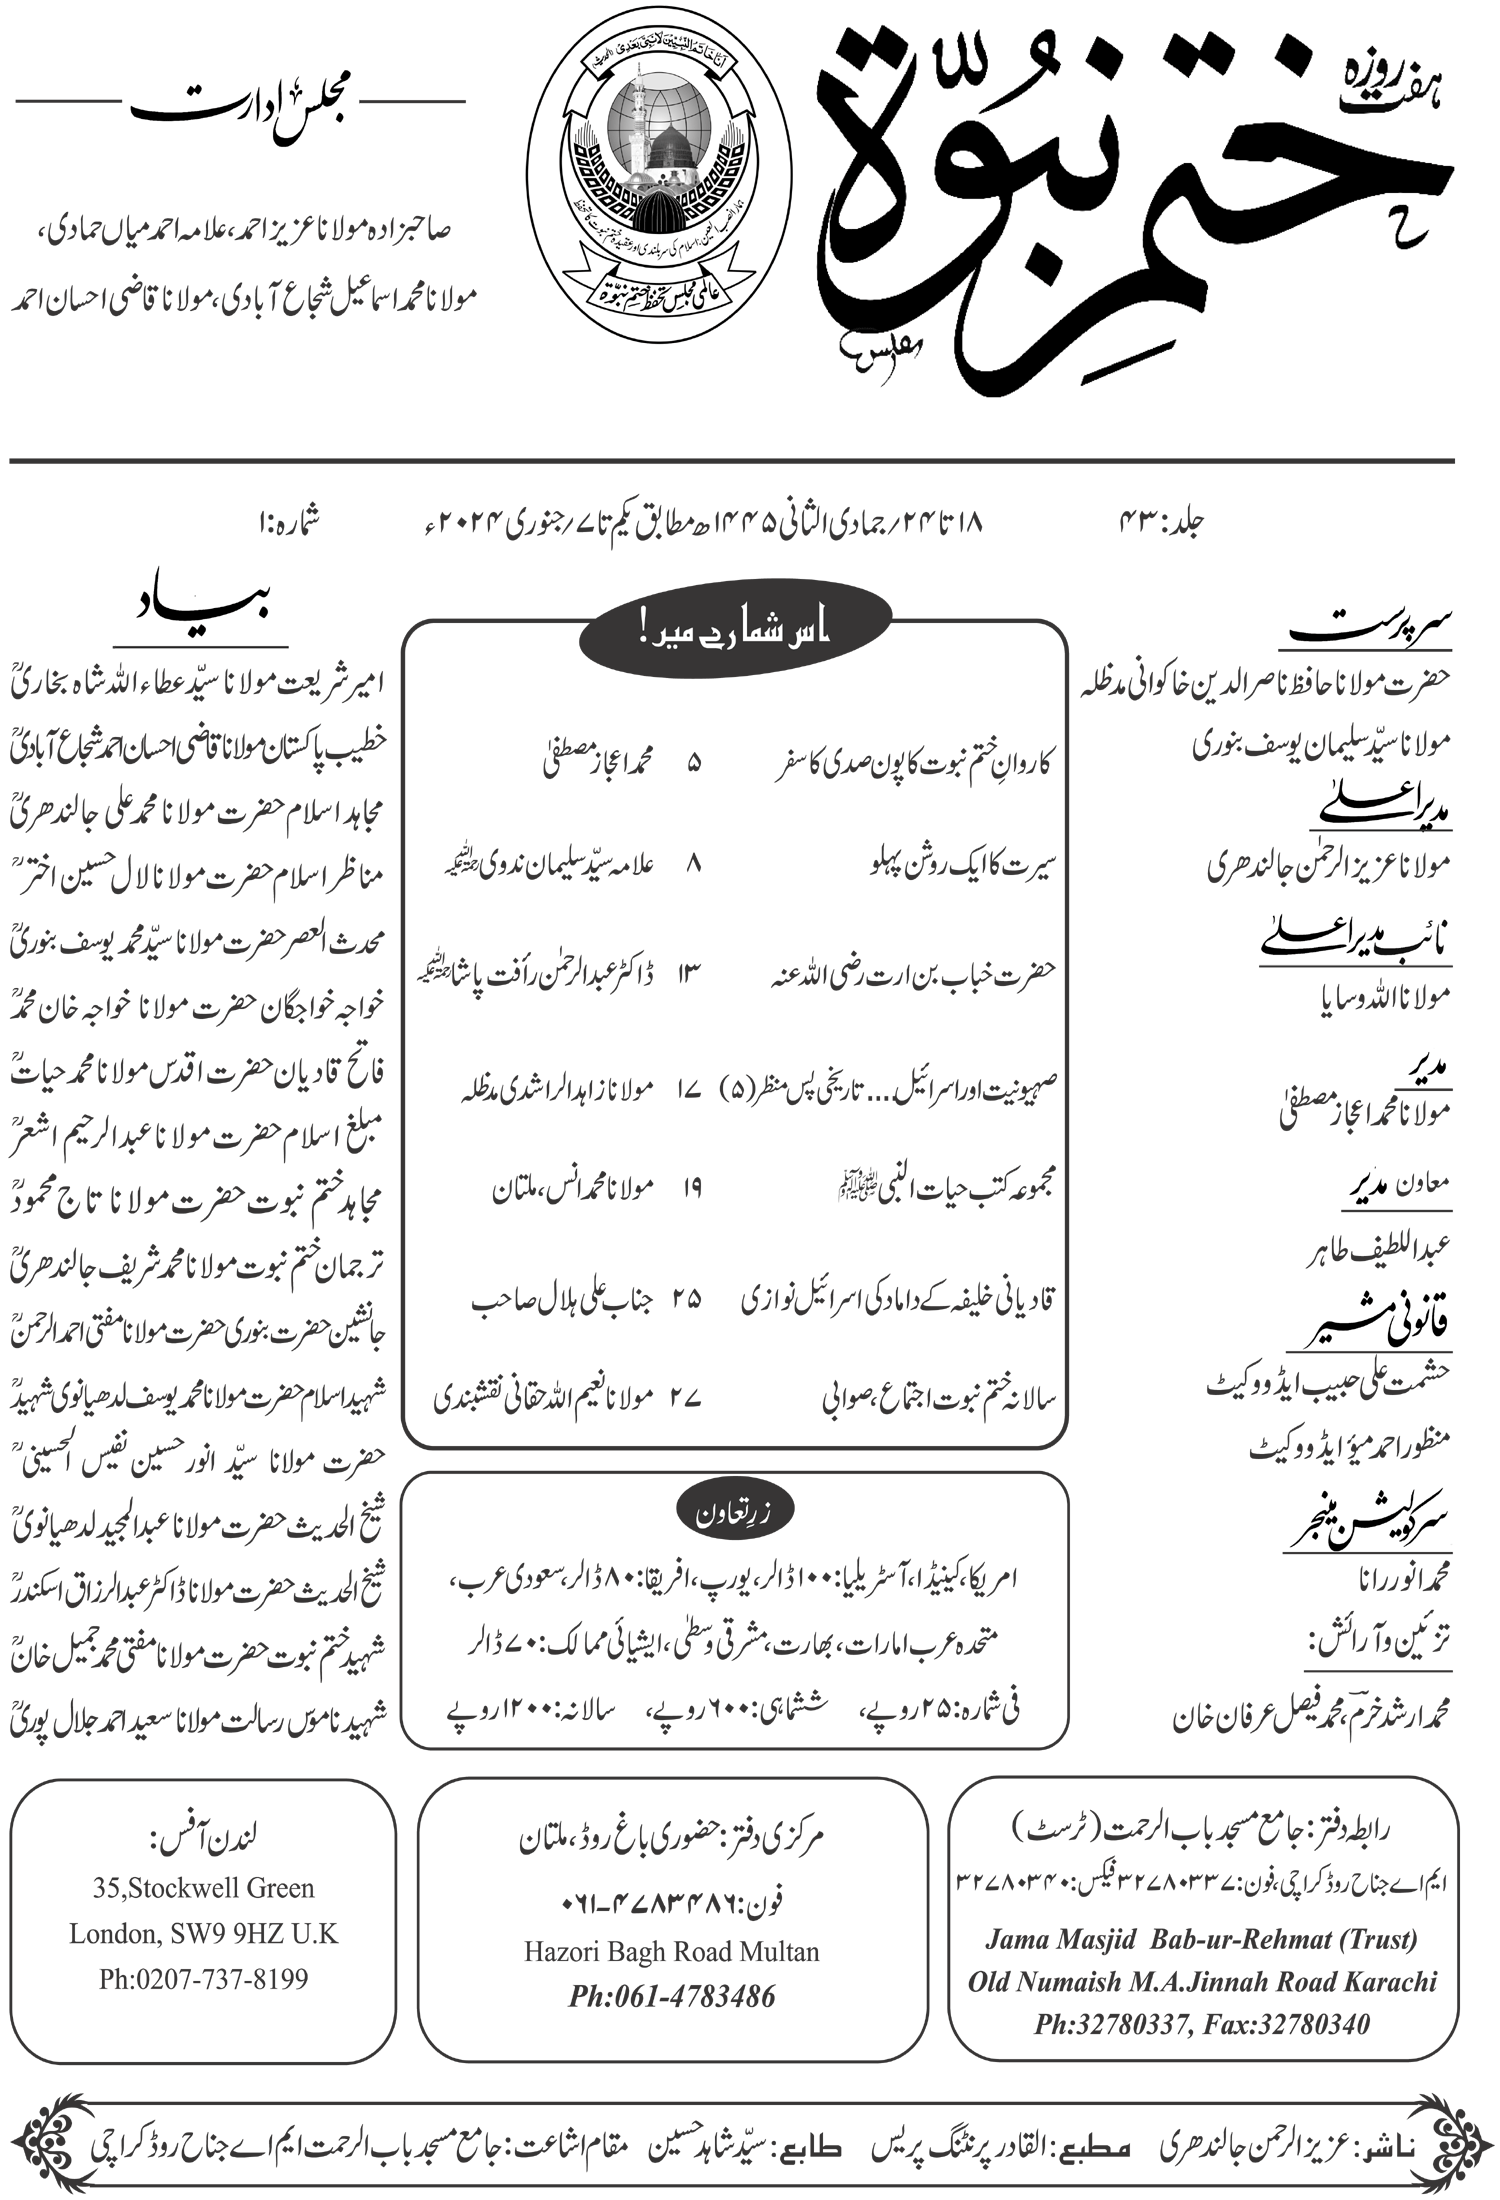 ہفت روزہ
ختم نبوّۃ
انا خاتم النبیین لا نبی بعدی
عالمی مجلس تحفظ ختم نبوّۃ
مجلس ادارت
صاحبزادہ مولانا عزیز احمد، علامہ احمد میاں حمادی،
مولانا محمد اسماعیل شجاع آبادی، مولانا قاضی احسان احمد
جلد: ۴۳
۱۸ تا ۲۴؍ جمادی الثانی ۱۴۴۵ھ مطابق یکم تا ۷؍ جنوری ۲۰۲۴ء
شمارہ: ۱
سرپرست
حضرت مولانا حافظ ناصر الدین خاکوانی مدظلہ
مولانا سیّد سلیمان یوسف بنوری
مدیر اعلےٰ
مولانا عزیز الرحمٰن جالندھری
نائب مدیر اعلےٰ
مولانا اللہ وسایا
مدیر
مولانا محمد اعجاز مصطفیٰ
معاون مدیر
عبداللطیف طاہر
قانونی مشیر
حشمت علی حبیب ایڈووکیٹ
منظور احمد میؤ ایڈووکیٹ
سرکولیشن مینجر
محمد انور رانا
تزئین و آرائش:
محمد ارشد خرمؔ، محمد فیصل عرفان خان
اس شمارے میں!
کاروانِ ختم نبوت کا پون صدی کا سفر ۵ محمد اعجاز مصطفیٰ
سیرت کا ایک روشن پہلو ۸ علامہ سیّد سلیمان ندوی رحمۃ اللہ علیہ
حضرت خباب بن ارت رضی اللہ عنہ ۱۳ ڈاکٹر عبدالرحمٰن رأفت پاشا رحمۃ اللہ علیہ
صہیونیت اور اسرائیل.... تاریخی پس منظر (۵) ۱۷ مولانا زاہد الراشدی مدظلہ
مجموعہ کتب حیات النبی ﷺ ۱۹ مولانا محمد انس، ملتان
قادیانی خلیفہ کے داماد کی اسرائیل نوازی ۲۵ جناب علی ہلال صاحب
سالانہ ختم نبوت اجتماع، صوابی ۲۷ مولانا نعیم اللہ حقانی نقشبندی
زرِ تعاون
امریکا، کینیڈا، آسٹریلیا: ۱۰۰ ڈالر، یورپ، افریقا: ۸۰ ڈالر، سعودی عرب،
متحدہ عرب امارات، بھارت، مشرقی وسطیٰ، ایشیائی ممالک: ۷۰ ڈالر
فی شمارہ: ۲۵ روپے، ششماہی: ۶۰۰ روپے، سالانہ: ۱۲۰۰ روپے
بیاد
امیر شریعت مولانا سیّد عطاء اللہ شاہ بخاریؒ
خطیب پاکستان مولانا قاضی احسان احمد شجاع آبادیؒ
مجاہد اسلام حضرت مولانا محمد علی جالندھریؒ
مناظر اسلام حضرت مولانا لال حسین اخترؒ
محدث العصر حضرت مولانا سیّد محمد یوسف بنوریؒ
خواجہ خواجگان حضرت مولانا خواجہ خان محمدؒ
فاتح قادیان حضرت اقدس مولانا محمد حیاتؒ
مبلغ اسلام حضرت مولانا عبدالرحیم اشعرؒ
مجاہد ختم نبوت حضرت مولانا تاج محمودؒ
ترجمان ختم نبوت مولانا محمد شریف جالندھریؒ
جانشین حضرت بنوری حضرت مولانا مفتی احمد الرحمٰنؒ
شہید اسلام حضرت مولانا محمد یوسف لدھیانوی شہیدؒ
حضرت مولانا سیّد انور حسین نفیس الحسینیؒ
شیخ الحدیث حضرت مولانا عبدالمجید لدھیانویؒ
شیخ الحدیث حضرت مولانا ڈاکٹر عبدالرزاق اسکندرؒ
شہید ختم نبوت حضرت مولانا مفتی محمد جمیل خانؒ
شہید ناموس رسالت مولانا سعید احمد جلال پوریؒ
رابطہ دفتر: جامع مسجد باب الرحمت (ٹرسٹ)
ایم اے جناح روڈ کراچی، فون: ۳۲۷۸۰۳۳۷ فیکس: ۳۲۷۸۰۳۴۰
Jama Masjid Bab-ur-Rehmat (Trust)
Old Numaish M.A.Jinnah Road Karachi
Ph:32780337, Fax:32780340
مرکزی دفتر: حضوری باغ روڈ، ملتان
فون: ۴۷۸۳۴۸۶-۰۶۱
Hazori Bagh Road Multan
Ph:061-4783486
لندن آفس:
35,Stockwell Green
London, SW9 9HZ U.K
Ph:0207-737-8199
ناشر: عزیز الرحمن جالندھری مطبع: القادر پرنٹنگ پریس طابع: سیّد شاہد حسین مقام اشاعت: جامع مسجد باب الرحمت ایم اے جناح روڈ کراچی